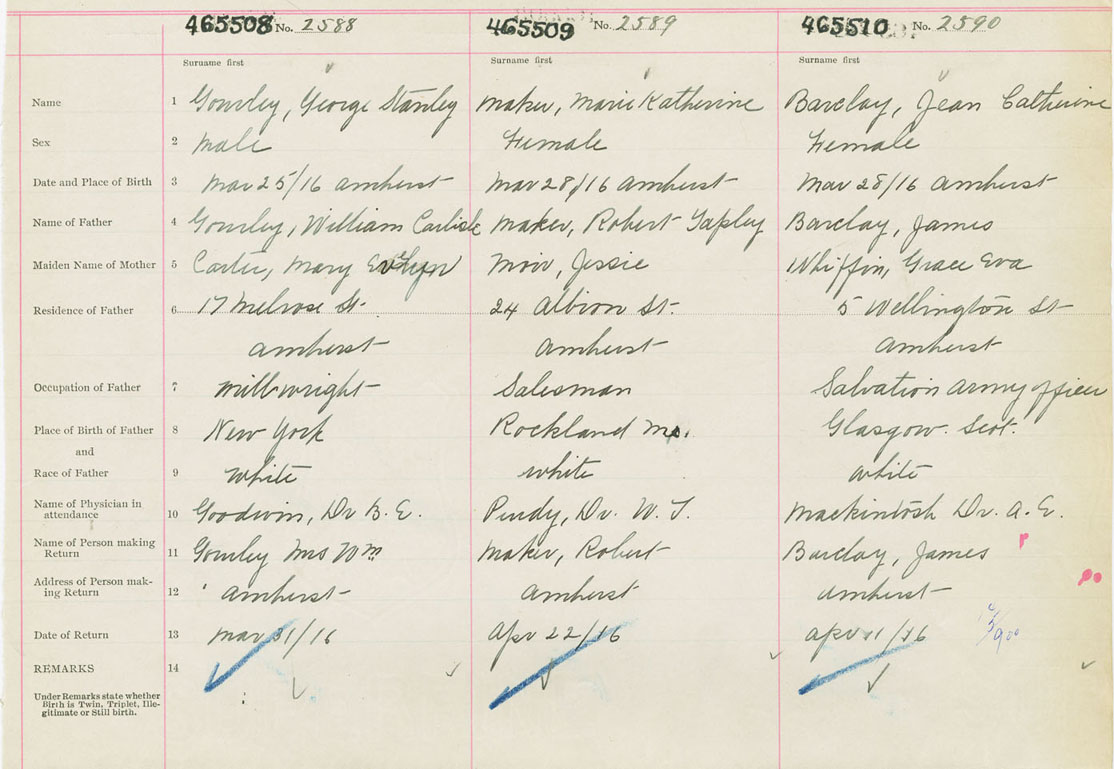 465508 No. 2588 465509 No. 2589 465510 No. 2590
Suruame first Surname first Surname first
Name 1 Gourley, George Stanley Maker, Marie Katherine Barclay, Jean Catherine
Sex 2 Male Female Female
Date and Place of Birth 3 Mar 25/16 Amherst Mar 28/16 Amherst Mar 28/16 Amherst
Name of Father 4 Gourley, William Carlisle Maker, Robert Tapley Barclay, James
Maiden Name of Mother 5 Carter, Mary Evelyn Moir, Jessie Whiffin, Grace Eva
Residence of Father 6 17 Melrose St. 24 Albion St. 5 Wellington St
Amherst Amherst Amherst
Occupation of Father 7 Millwright Salesman Salvation Army officer
Place of Birth of Father 8 New York Rockland Me. Glasgow. Scot.
and
Race of Father 9 white white white
Name of Physician in
attendance 10 Goodwin, Dr B. E. Purdy, Dr. W. T. Mackintosh Dr. A. E.
Name of Person making
Return 11 Gourley Mrs Wm Maker, Robert Barclay, James
Address of Person mak-
ing Return 12 Amherst Amherst Amherst
Date of Return 13 Mar 31/16 Apr 22/16 Apr 11/16
REMARKS 14
Under Remarks state whether
Birth is Twin, Triplet, Ille-
gitimate or Still birth.